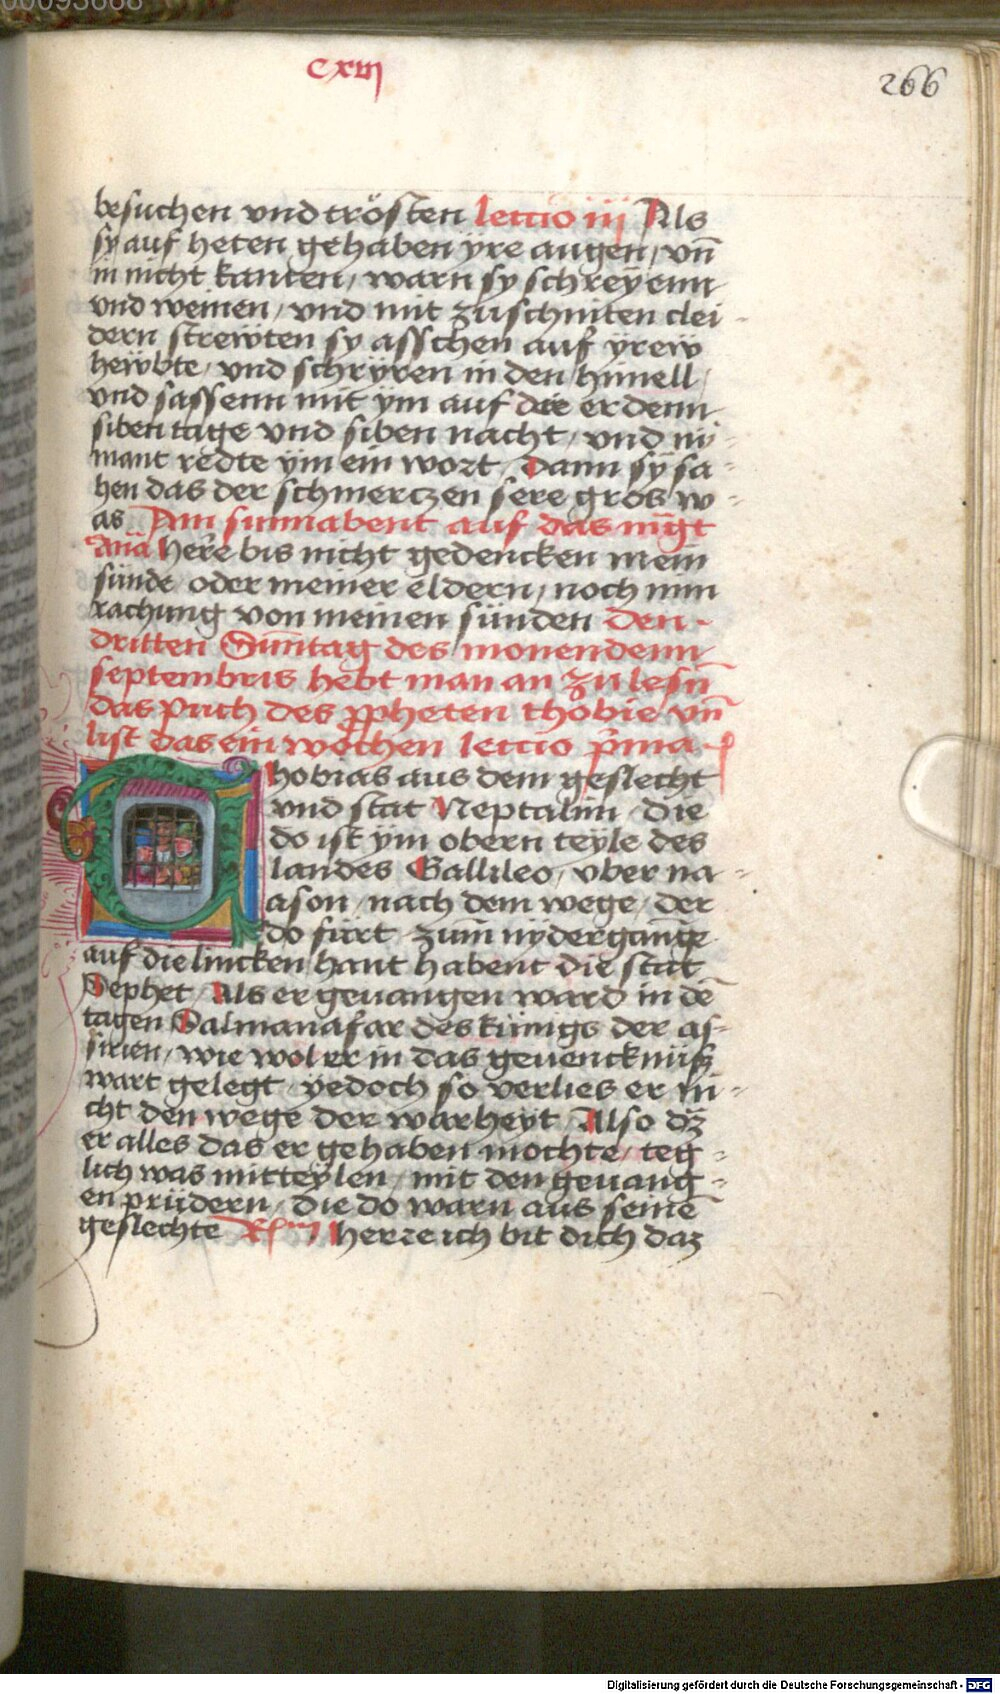 00093668
cxiij
266
besuchen vnd trösten lectio iij Als
sy auf heten gehaben yre augen / vn̄
in nicht kanten / warn sy schreyenn
vnd weinen / vnd mit zuschniten clei-
dern strewten sy asschen auf yrew
hewbte / vnd schryren in den himell /
vnd sassenn mit ym auf die erdenn
siben tage vnd siben nacht / vnd ny-
mant redte ym ein wort / Dann sy sa-
hen das der schmerczen sere gros w-
as Am sunnabent auf das mgt
Ana here bis nicht gedencken mein
sünde oder meiner eldern / noch nim
rachung von meinen sünden Den
dritten Suntag des monendenn
septembris hebt man an zu lesn̄
das puch des ppheten thobie vn̄
list das ein wochen lectio p̄ma
Thobias aus dem geslecht
vnd stat Neptalim / die
do ist ym obern teyle des
landes Gallileo / vber na-
ason / nach dem wege / der
do fürt zum nydergange
auf die lincken hant habent die stat
Sephet / Als er geuangen ward in dē
tagen Salmanasar des künigs der as-
sirien / wie wol er in das geuencknüsz
wart gelegt / yedoch so verlies er ni-
cht den wege der warheyt / Also dz
er alles das er gehaben mochte / teg-
lich was mitteylen / mit den geuang-
en prüdern / die do warn aus seinē
geslechte Rsm Herre ich bit dich daz
Digitalisierung gefördert durch die Deutsche Forschungsgemeinschaft - DFG